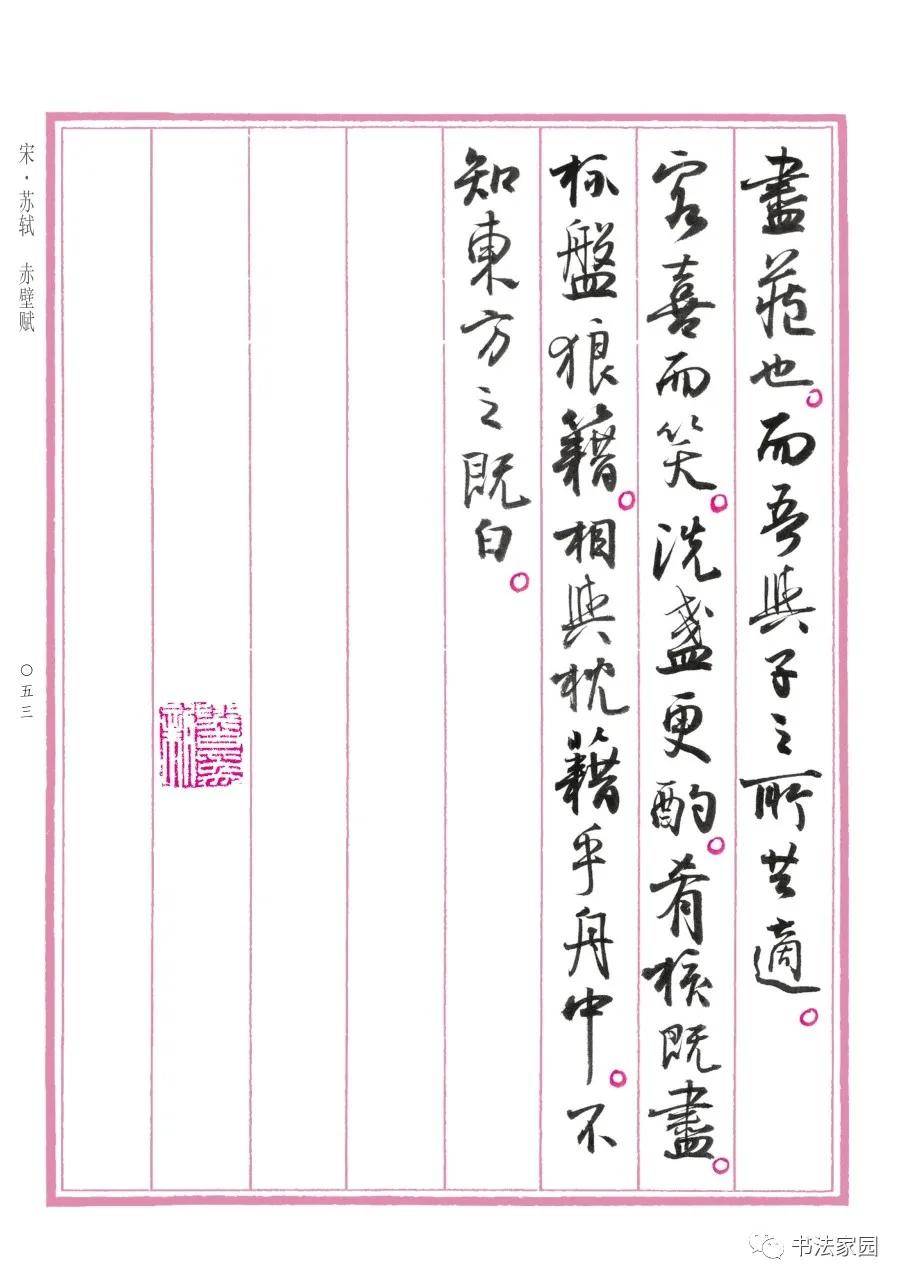 盡藏也。而吾與子之所共適。
客喜而笑。洗盞更酌。肴核既盡。
杯盤狼籍。相與枕藉乎舟中。不
知東方之既白。
宋·苏轼 赤壁赋
〇五三
书法家园